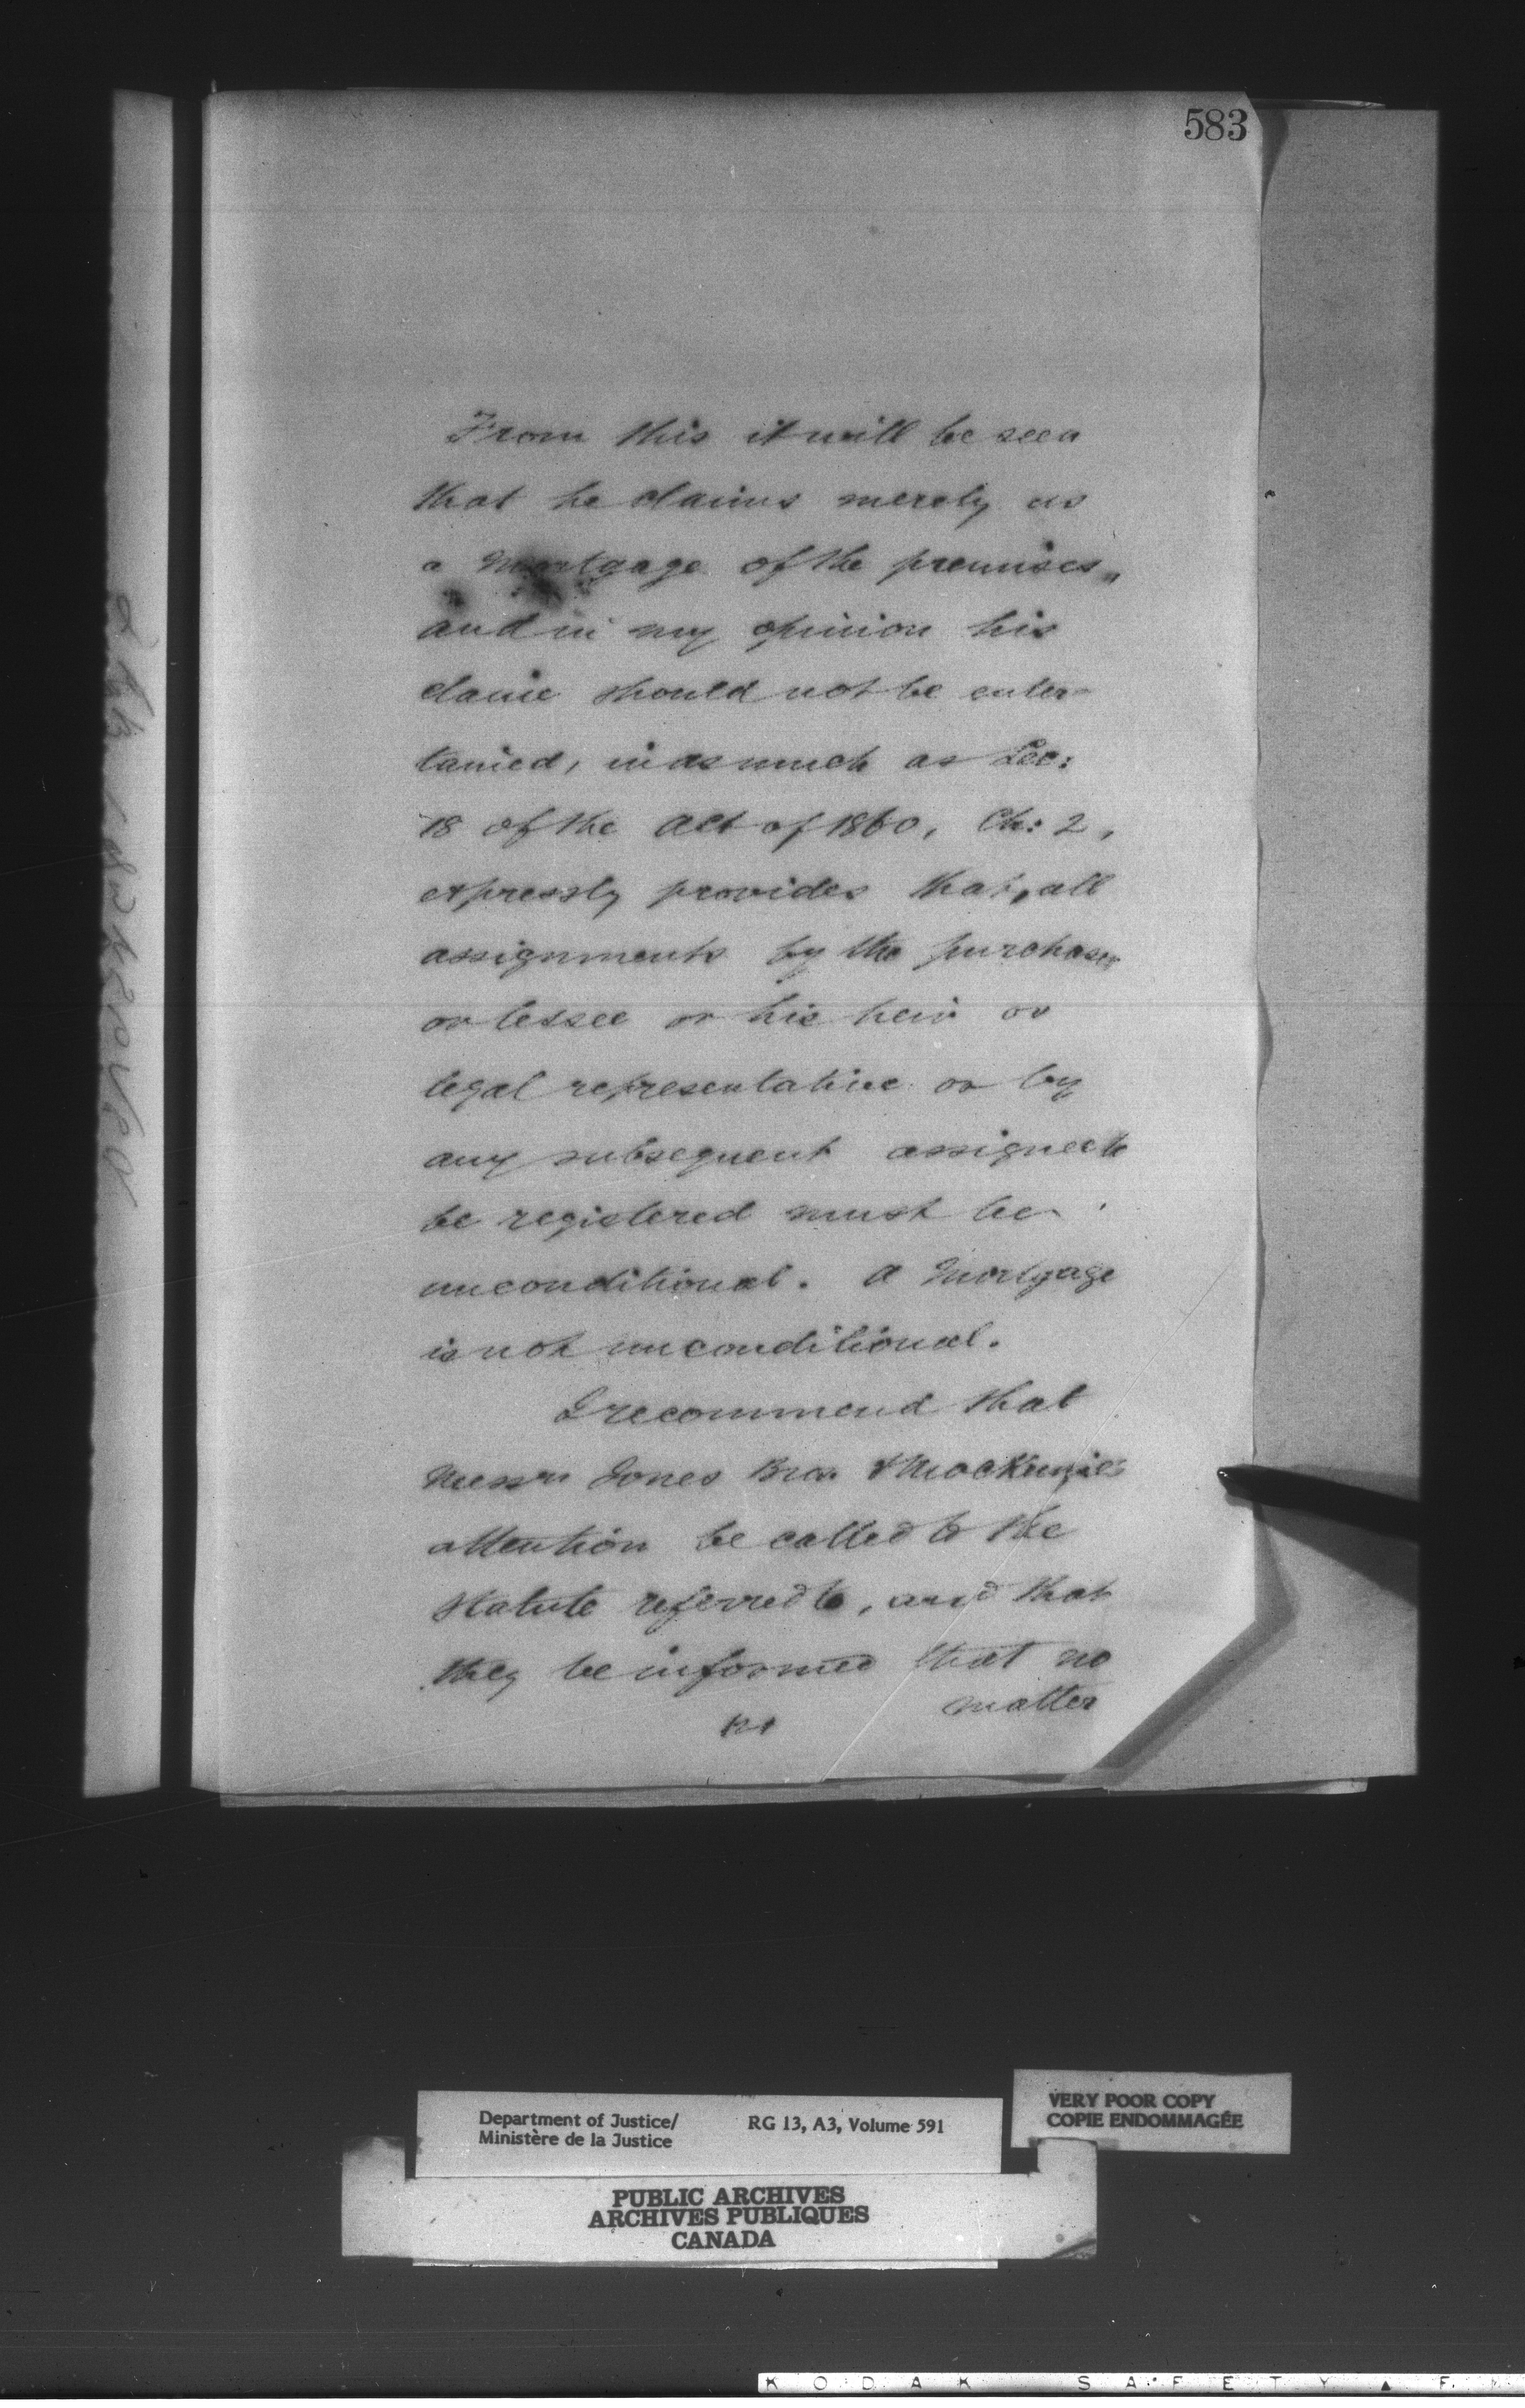 583
From this it will be seen
that he claims merely as
a Mortgage of the premises,,
and in my opinion his
claim should not be enter-
tained, in as much as Sec:
18 of the Act of 1860, Ch: 2,
expressly provides that, all
assignments by the purchaser
or lessee or his heir or
legal representative or by
any subsequent assignee to
be registered must be
unconditional. A Mortgage
is not unconditional.
I recommend that
Messrs Jones Bros. & MacKenzie's
attention be called to the
Statute referred to, and that
they be informed that no
matter
Department of Justice/
Ministère de la Justice
RG 13, A3, Volume 591
VERY POOR COPY
COPIE ENDOMMAGÉE
PUBLIC ARCHIVES
ARCHIVES PUBLIQUES
CANADA
KODAK SAFETY F